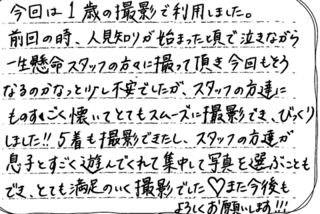 今回は1歳の撮影で利用しました。
前回の時、人見知りが始まった頃で泣きながら
一生懸命スタッフの方々に撮って頂き今回もそう
なるのかなっと少し不安でしたが、スタッフの方達に
ものすごく懐いてとてもスムーズに撮影でき、びっくり
しました!!5着も撮影できたし、スタッフの方達が
息子とすごく遊んでくれて集中して写真を選ぶことも
でき、とても満足のいく撮影でした♡また今後も
よろしくお願いします!!!